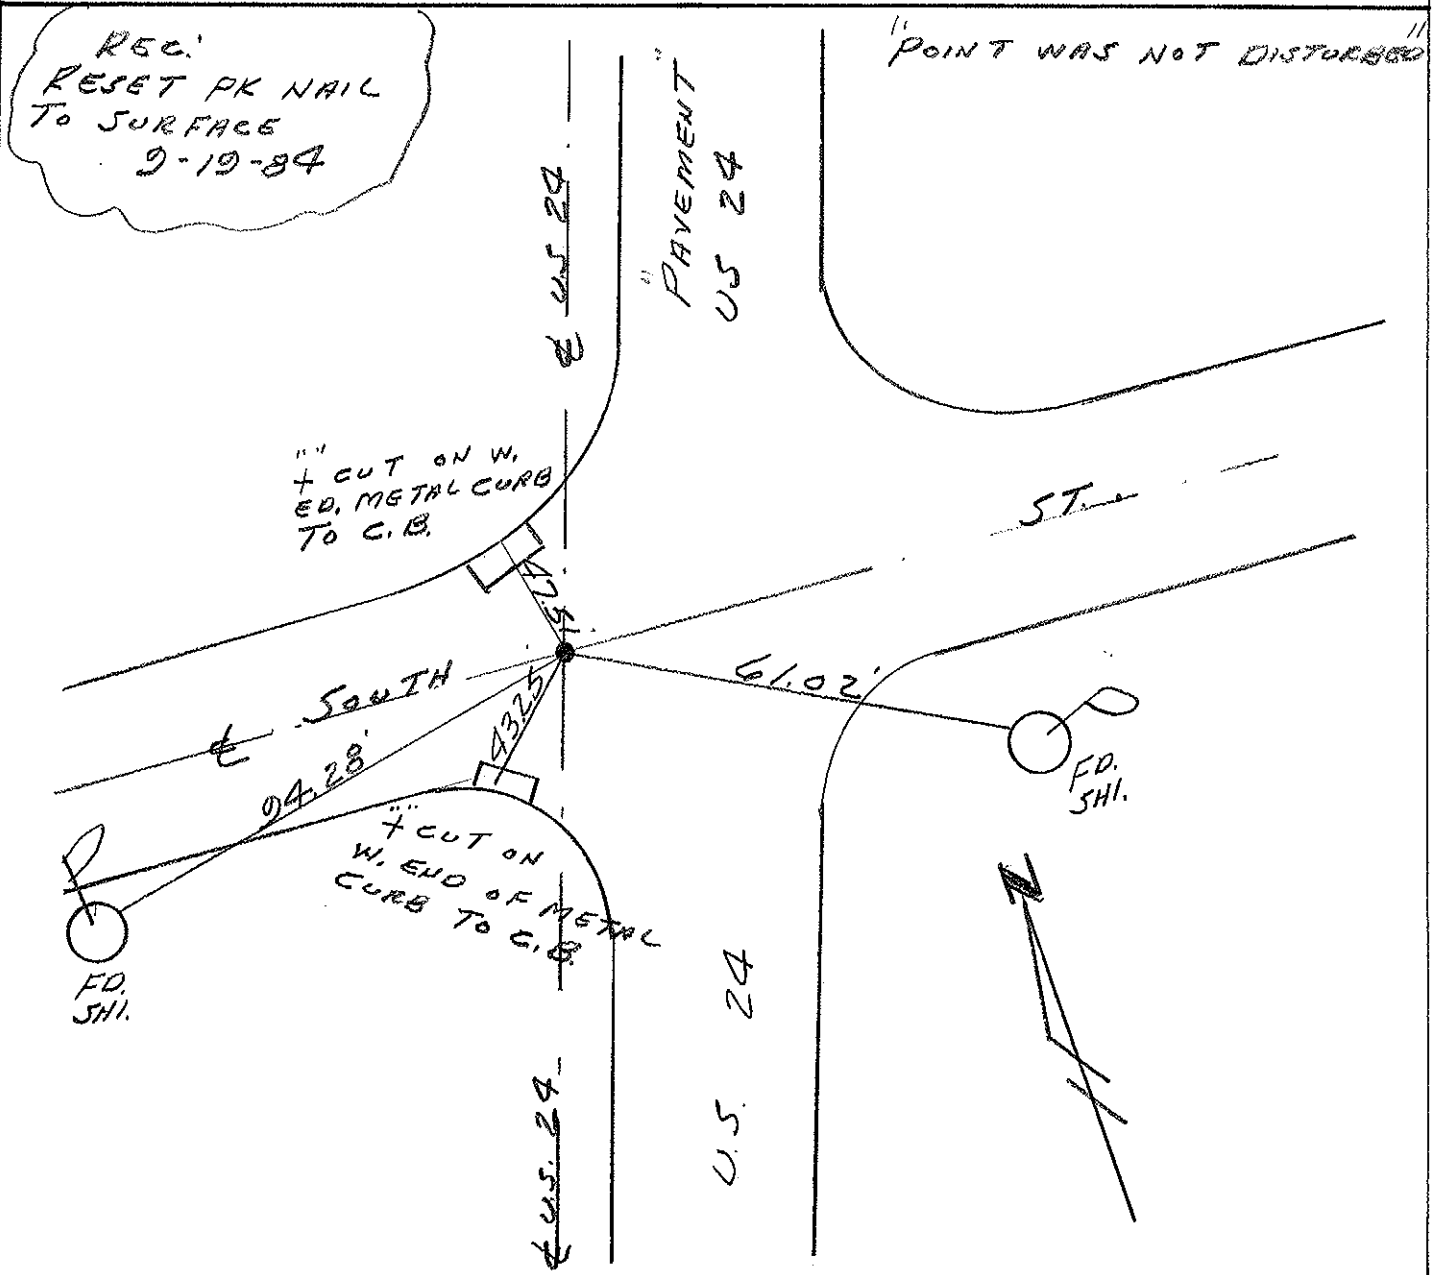 REC:
RESET PK NAIL
TO SURFACE
9-19-84
"POINT WAS NOT DISTURBED"
"PAVEMENT"
US 24
℄ US 24
"+" CUT ON W.
ED. METAL CURB
TO C.B.
ST.
℄ SOUTH
61.02'
43.25
94.28'
FD.
SHI.
"+" CUT ON
W. END OF METAL
CURB TO C.B.
FD.
SHI.
N
U.S. 24
℄ U.S. 24